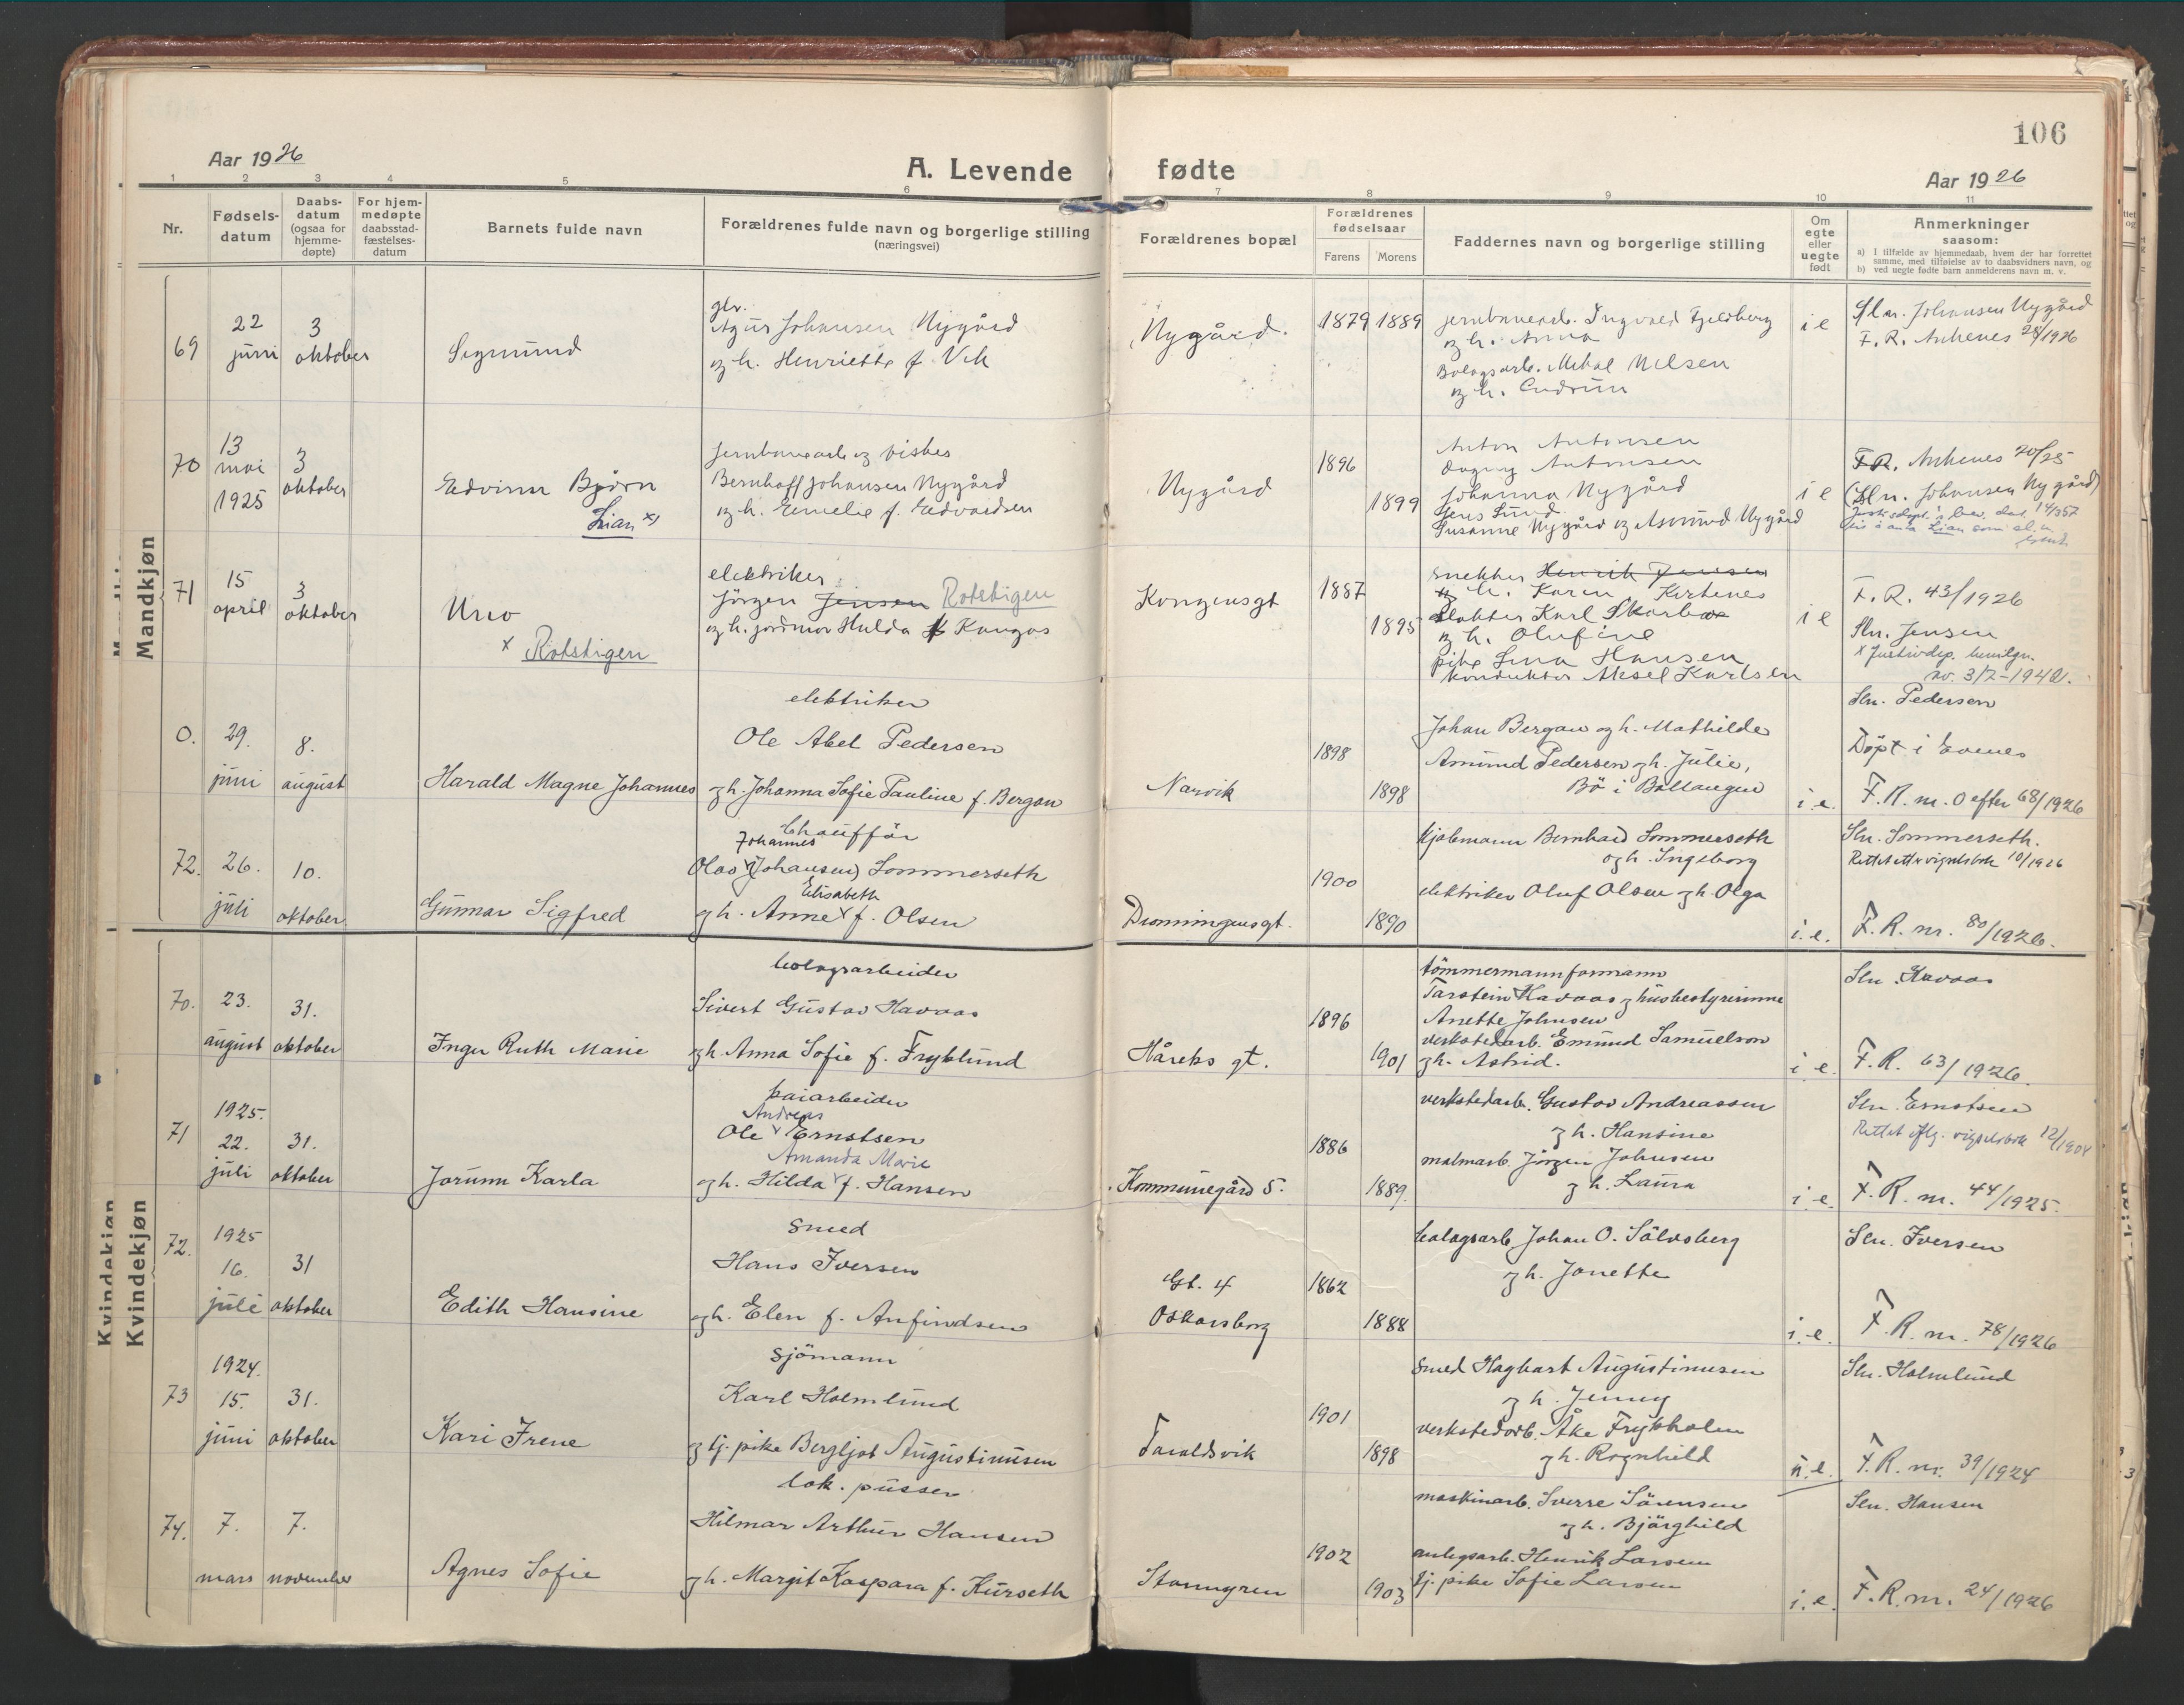 106
Aar 1926
A. Levende fødte
Aar 1926
1 2 3 4 5 6 7 8 9 10 11
Nr.
Fødsels-
datum
Daabs-
datum
(ogsaa for
hjemme-
døpte)
For hjem-
medøpte
daabsstad-
fæstelses-
datum
Barnets fulde navn
Forældrenes fulde navn og borgerlige stilling
(næringsvei)
Forældrenes bopæl
Forældrenes
fødselsaar
Farens Morens
Faddernes navn og borgerlige stilling
Om
egte
eller
uegte
født
Anmerkninger
saasom:
a) I tilfælde av hjemmedaab, hvem der har forrettet
samme, med tilføielse av to daabsvidners navn, og
b) ved uegte fødte barn anmelderens navn m. v.
Mandkjøn
69
22
juni
3
oktober
Sigmund
Johansen Nygård
og h. Henriette f. Vik
Nygård.
1879 1889
jernbanearb. Ingvald Fjeldberg
og h. Anna
Bolagsarb. Mikal Nilsen
og h. Gudrun
i e
Sln. Johansen Nygård
F. R. Ankenes 28/1926
70
13
mai
1925
3
oktober
Edvinn Bjørn
Lian x)
jernbanearb og fisker
Bernhoff Johansen Nygård
og h. Emelie f. Edvardsen
Nygård
1896
1899
Anton Antonsen
Dagny Antonsen
Johanna Nygård
Jens Lund
Susanne Nygård og Asmund Nygård
i e
F.R. Ankenes 20/25
(Sln. Johansen Nygård)
71
15
april
3
oktober
Uno
x Rotstigen
elektriker
Jörgen Jensen Rotstigen
og h. jordmor Hulda f Kangas
Kongensgt
1887
1895
snekker Henrik Jensen
og h. Karen Kirkenes
Slakter Karl Skarbø
og h. Olufine
pike Lina Hansen
konduktør Aksel Karlsen
i e
F. R. 43/1926
Sln. Jensen
x Justisdep. bevilgn.
av 3/7-1940.
0.
29.
juni
8.
august
Harald Magne Johannes
elektriker
Ole Abel Pedersen
og h. Johanna Sofie Pauline f. Bergan
Narvik
1898
1898
Johan Bergan og h. Mathilde
Amund Pedersen og h. Julie,
Bö i Ballangen
i. e.
Sln. Pedersen
Döpt i Evenes
F. R. nr. 0 efter 68/1926
72.
26.
juli
10.
oktober
Gunnar Sigfred
Chaufför
Johannes
Olav x (Johansen) Sommerseth
Elisabeth
og h. Anne x f. Olsen
Dronningensgt.
1900
1890
kjøbmann Bernhard Sommerseth
og h. Ingeborg
elektriker Oluf Olsen og h. Olga
i. e.
Sln. Sommerseth.
Rettet etter vigselsbok 10/1926
F. R. nr. 80/1926.
Kvindekjøn
70.
23.
august
31.
oktober
Inger Ruth Marie
bolagsarbeider
Sivert Gustav Havaas
og h. Anna Sofie f. Fryklund
Håreks gt.
1896
1901
tömmermannformann
Tarstein Havaas og husbestyrerinne
Anette Johnsen
verkstedarb. Emund Samuelson
og h. Astrid.
i e.
Sln. Havaas
F. R. 63/1926.
71
1925.
22.
juli
31.
oktober
Jorunn Karla
kaiarbeider
Andreas
Ole x Ernstsen
Amanda Marie
og h. Hilda x f. Hansen
Kommunegård 5.
1886
1889.
verkstedarb. Gustav Andreassen
og h. Hansine
malmarb. Jörgen Johnsen
og h. Laura
i e.
Sln. Ernstsen
Rettet iflg. vigselsbok 12/1904
F. R. nr. 44/1925.
72.
1925
16.
juli
31
oktober
Edith Hansine
Smed
Hans Iversen
og h. Elen f. Anfindsen
Gt. 4
Oskarsborg
1862
1888
bolagsarb. Johan O. Sölvsberg
og h. Jonette
i. e.
Sln. Iversen
F. R. nr. 78/1926
73
1924.
15.
juni
31.
oktober
Kari Irene
Sjömann
Karl Holmlund
og tj. pike Bergljot Augustinusen
Taraldsvik
1901
1898
smed Hagbart Augustinusen
og h. Jenny
verkstedarb. Åke Frykholm
og h. Ragnhild
u. e.
Sln. Holmlund
F. R. nr. 39/1924
74.
7.
mars
7.
november
Agnes Sofie
lok. pusser
Hilmar Arthur Hansen
og h. Margit Kaspara f. Kurseth
Stormyren
1902
1903
maskinarb. Sverre Sörensen
og h. Bjärghild
anlegsarb. Henrik Larsen
tj. pike Sofie Larsen
i. e.
Sln. Hansen
F. R. nr. 24/1926